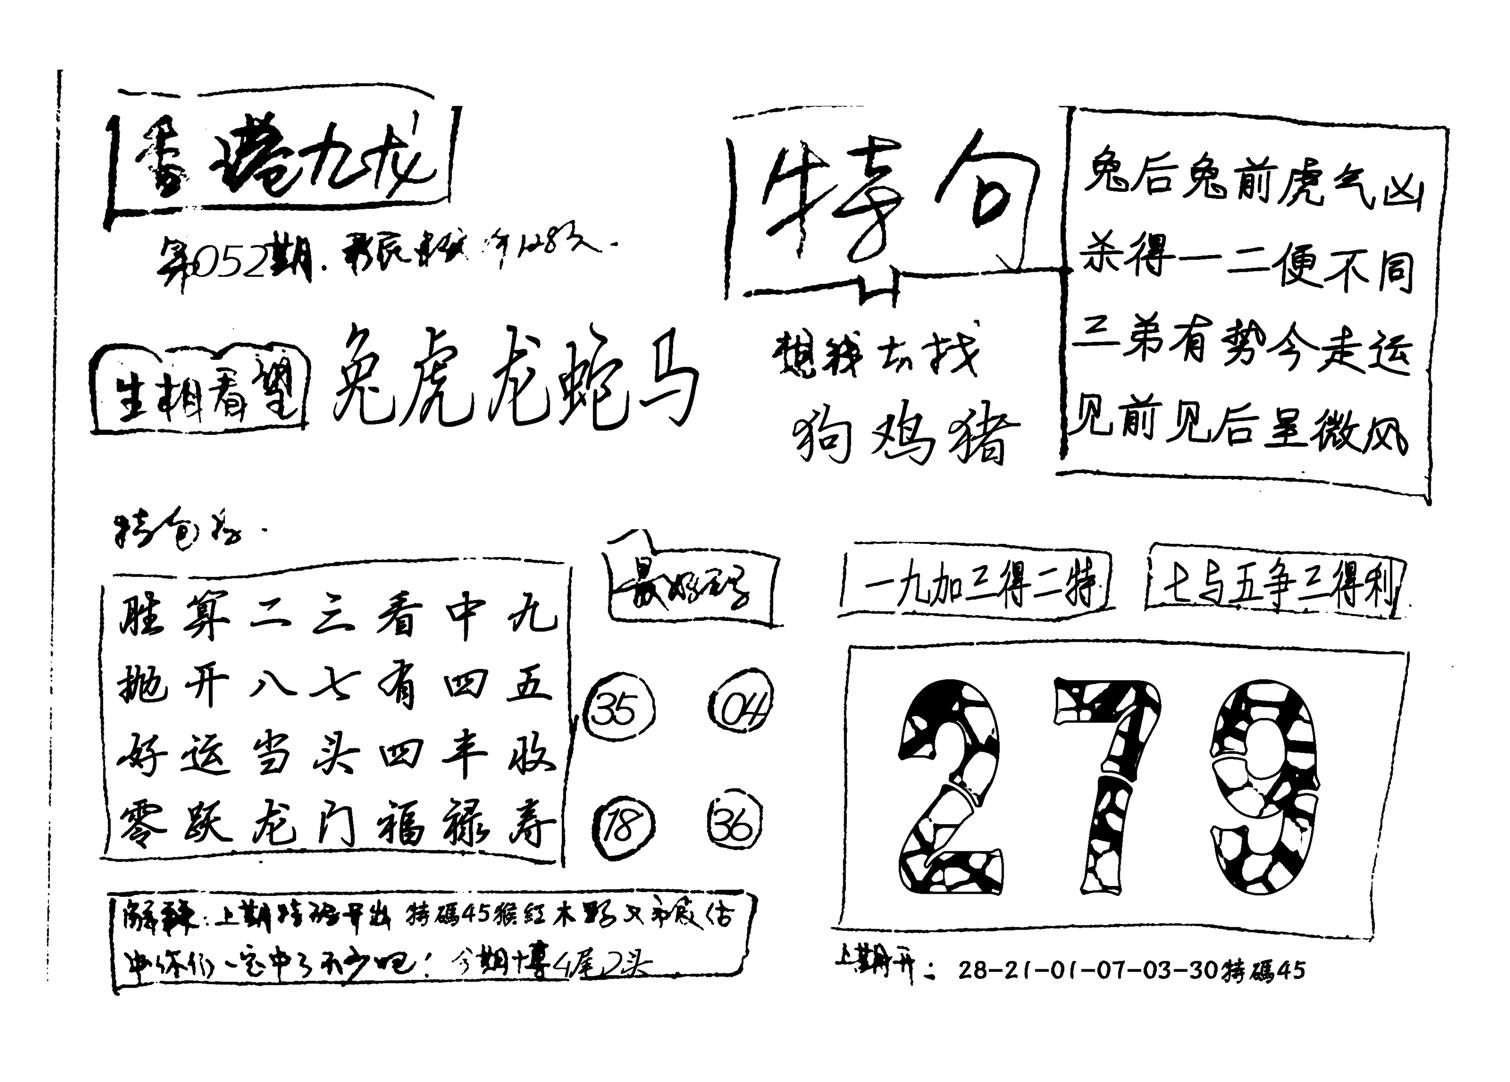 香港九龙
第052期.
生相看望
兔虎龙蛇马
特句
想钱去找
狗鸡猪
兔后兔前虎气凶
杀得一二便不同
三弟有势今走运
见前见后呈微风
特包
胜算二三看中九
抛开八七有四五
好运当头四丰收
零跃龙门福禄寿
最好码
35 04
18 36
一九加三得二特
七与五争三得利
279
解释：上期特码开出 特碼45猴紅木野 估
中你们一定中了不少吧！今期博4尾2头
上期开： 28-21-01-07-03-30特碼45